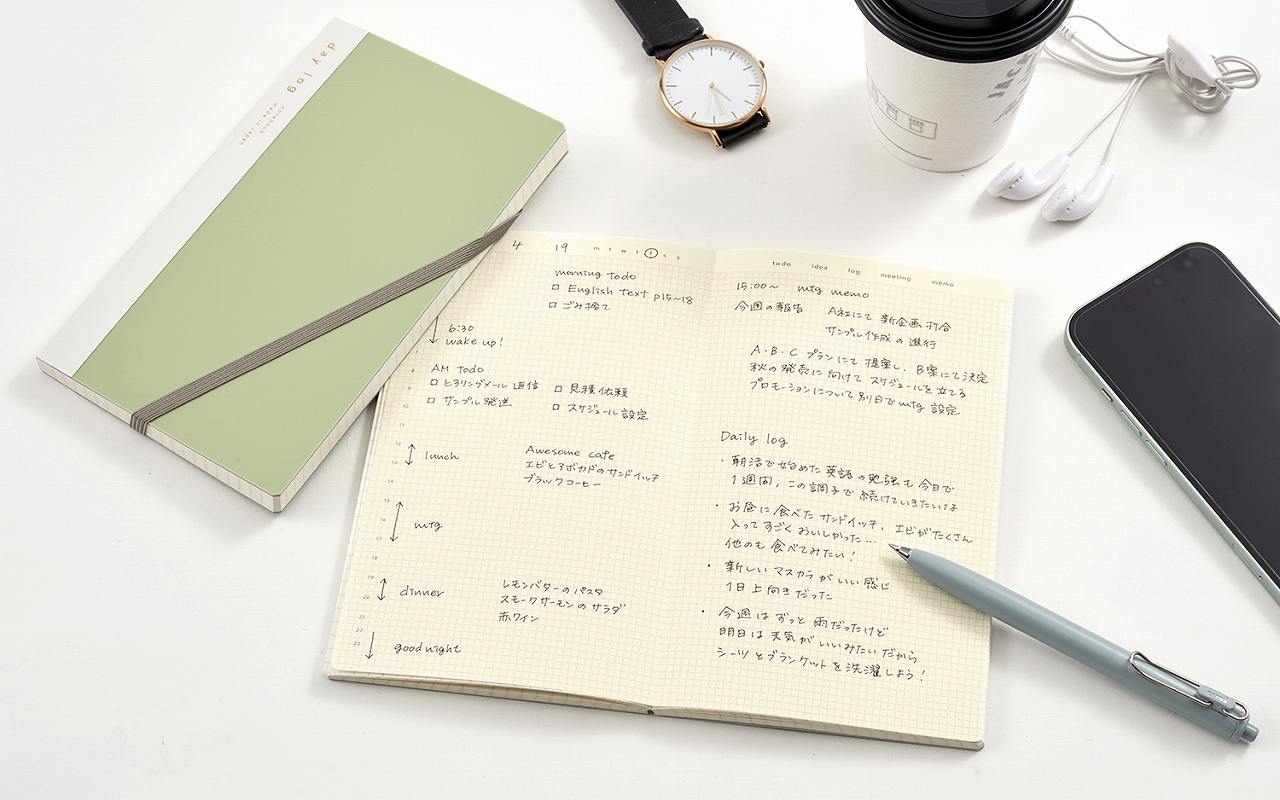 day log
notebook
made in Japan
4 19 m t w t f s s
morning todo
□ English text p15~18
□ ごみ捨て
6:30
wake up!
AM todo
□ ヒアリングメール 返信 □ 見積依頼
□ サンプル発送 □ スケジュール設定
lunch
Awesome cafe
エビとアボカドのサンドイッチ
ブラックコーヒー
mtg
dinner
レモンバターのパスタ
スモークサーモンのサラダ
赤ワイン
good night
todo idea log meeting memo
15:00~ mtg memo
今週の報告 A社にて 新企画打合
サンプル作成の進行
A・B・C プランにて 提案し、B案にて決定
秋の発売に向けて スケジュールを立てる
プロモーションについて別日でmtg 設定
Daily log
・朝活で始めた英語の勉強も今日で
1週間，この調子で続けていきたいな
・お昼に食べたサンドイッチ，エビがたくさん
入ってすごくおいしかった…
他のも食べてみたい!
・新しいマスカラがいい感じ
1日上向きだった
・今週はずっと雨だったけど
明日は天気がいいみたいだから
シーツとブランケットを洗濯しよう!